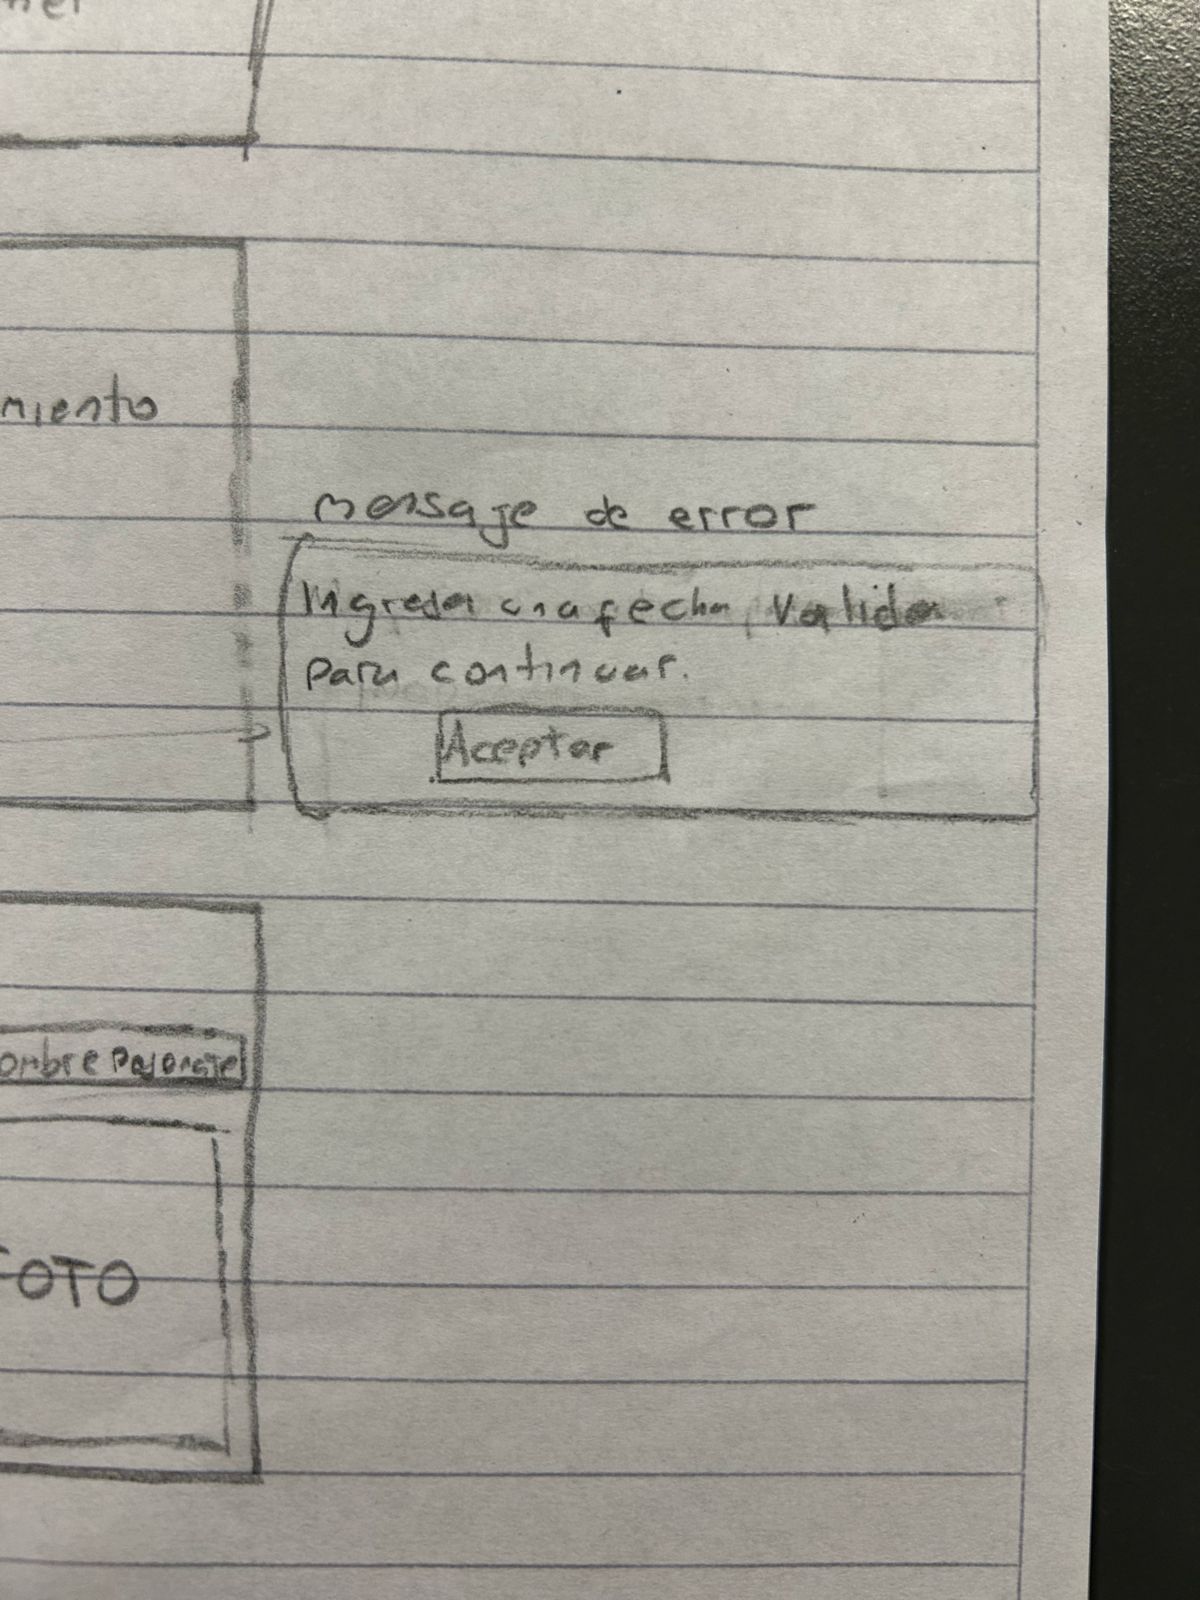 miento
mensaje de error
Ingresa una fecha valida
para continuar.
Aceptar
ombre Personaje
FOTO